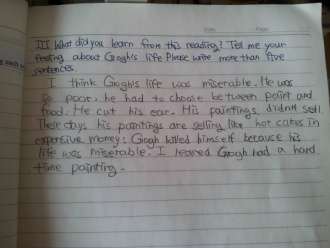 III What did you learn from this reading? Tell me your
feeling about Gogh's life Please write more than five
sentences
I think Gogh's life was miserable. He was
so poor. he had to choose between paint and
food. He cut his ear. His paintings didnn't sell
These days his paintings are selling like hot cakes in
expensive money. Gogh killed himself because his
life was miserable. I leared Gogh had a hard
time painting.